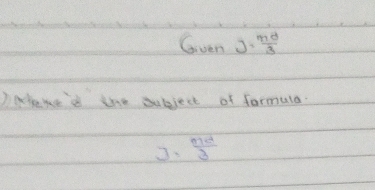 Given J = md/3
) Make "d" the subject of formula.
J = md/3